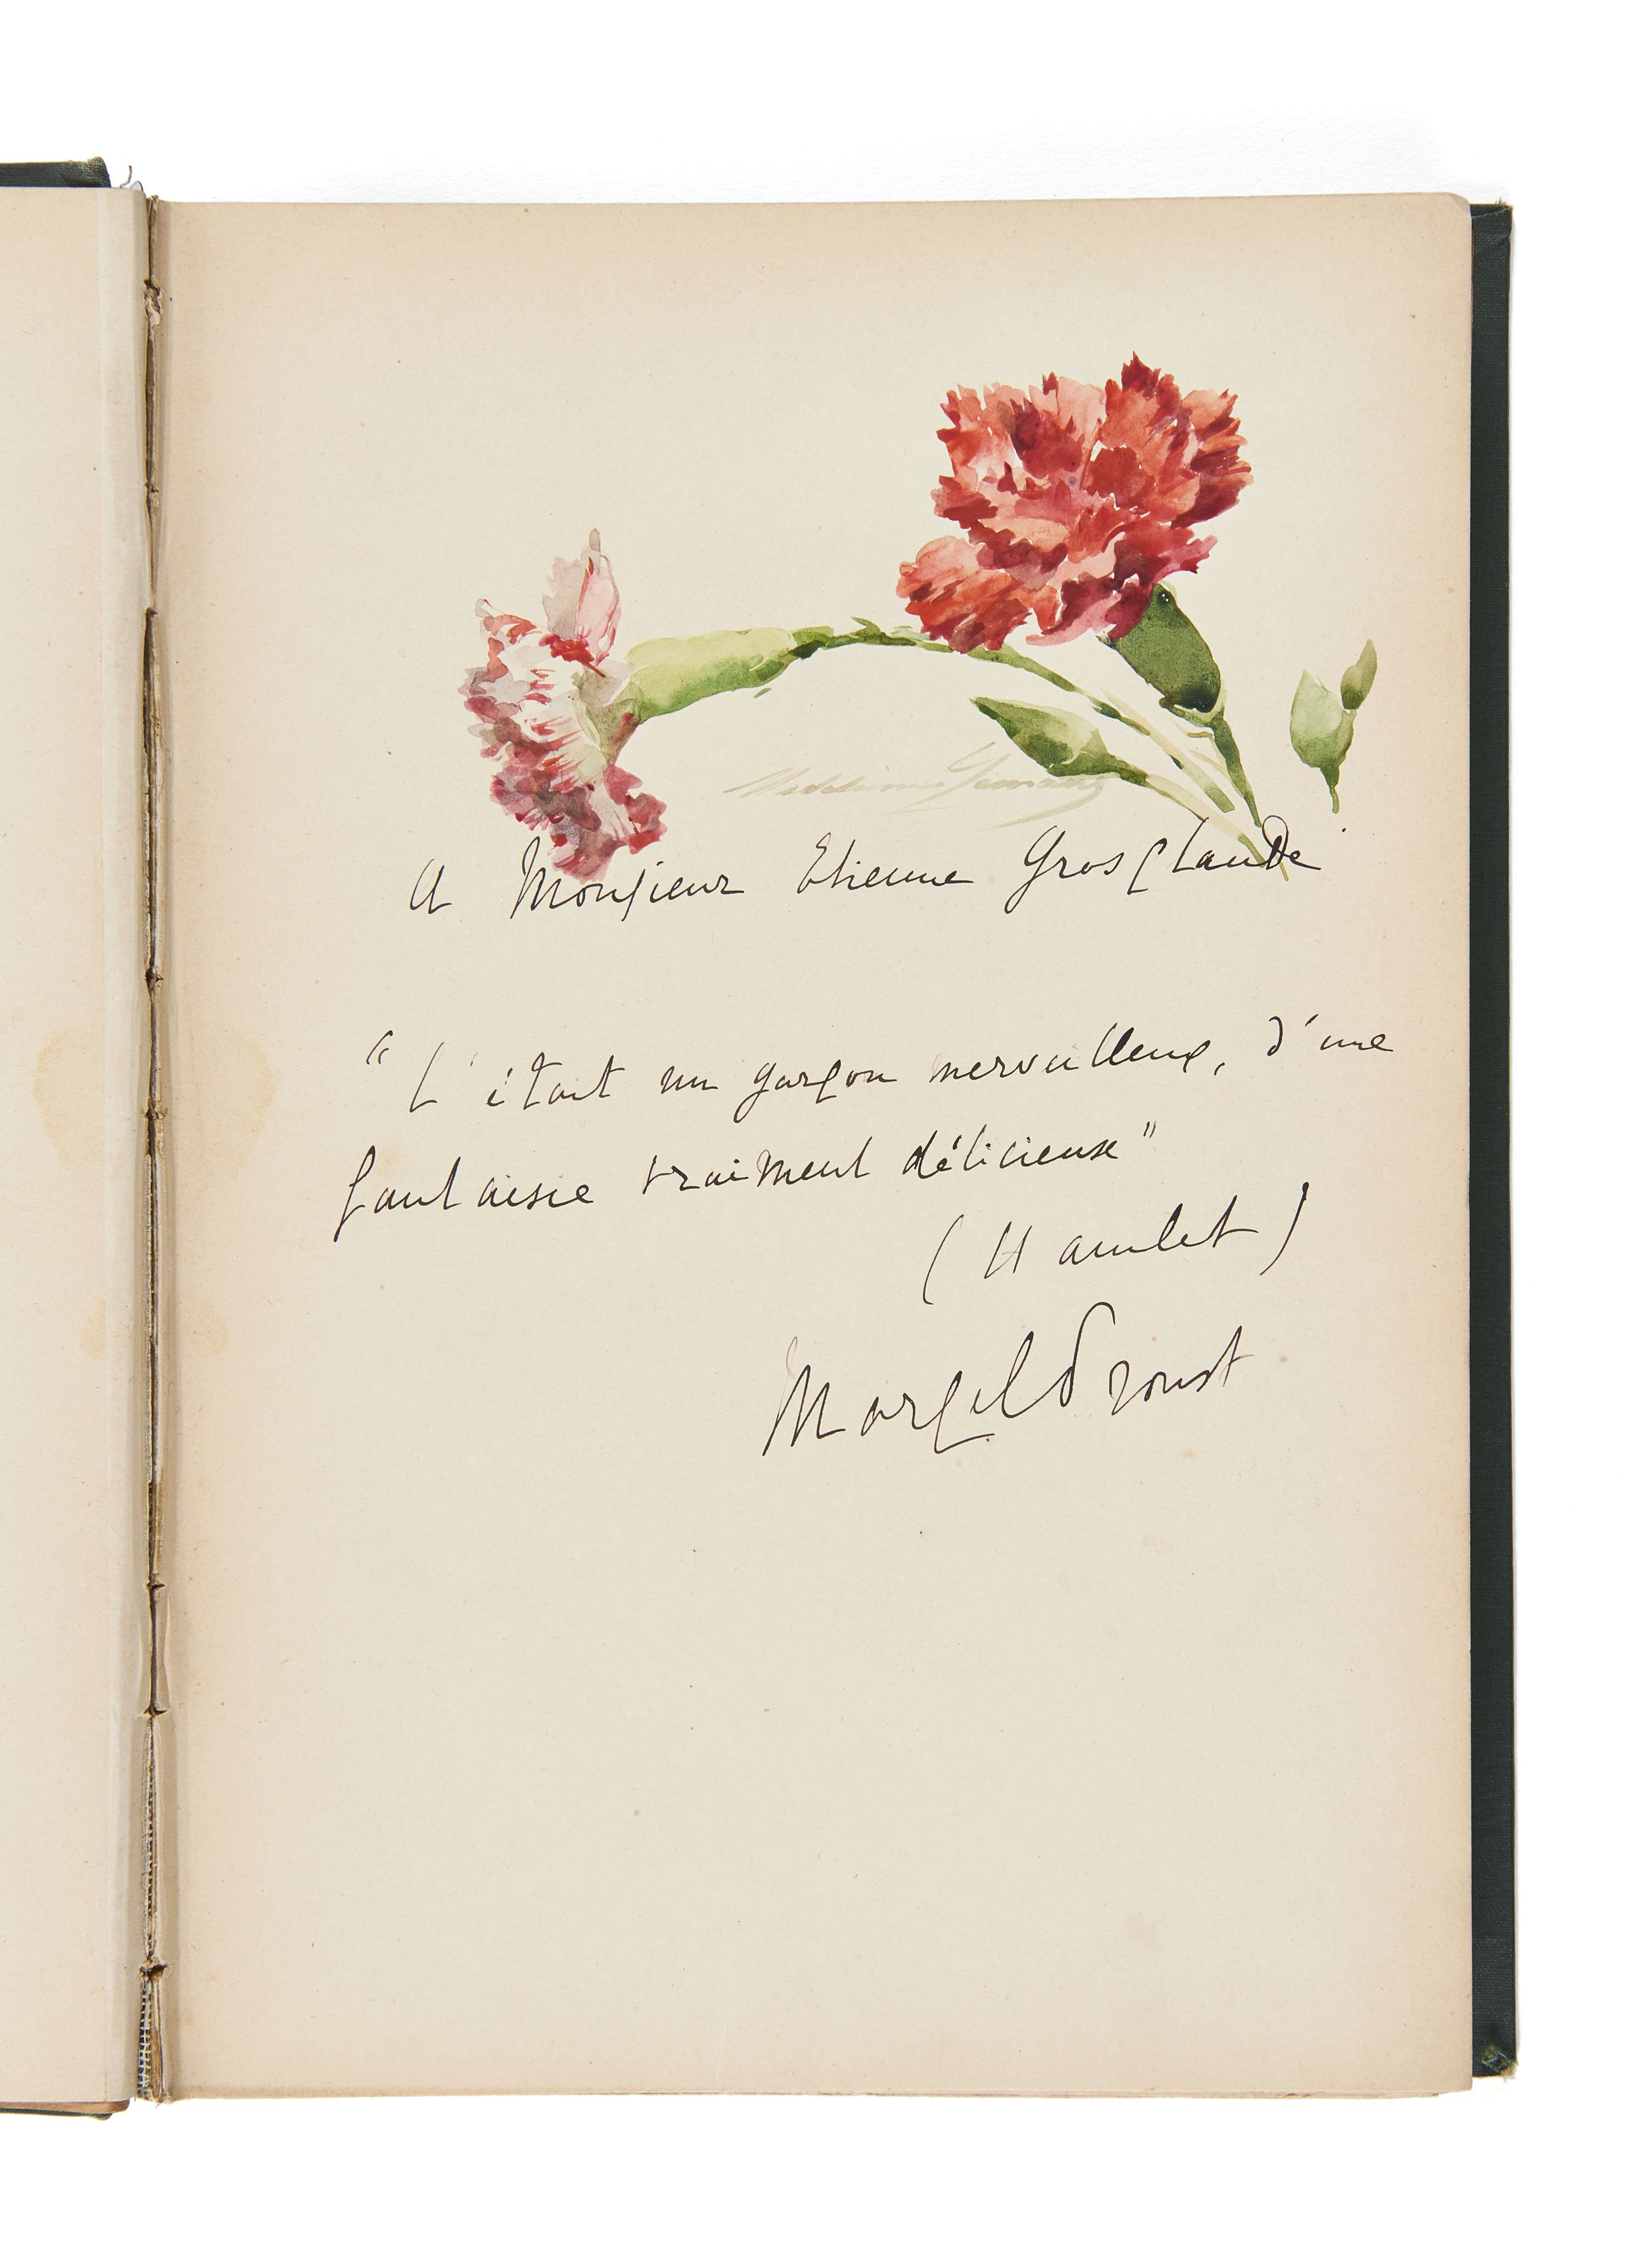 Madeleine Lemaire
A Monsieur Etienne Grosclaude
"C'était un garçon merveilleux, d'une
fantaisie vraiment délicieuse"
(Hamlet)
Marcel Proust